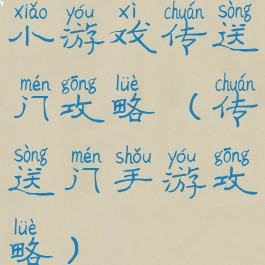 xiǎo yóu xì chuán sòng
小游戏传送
mén gōng lüè chuán
门攻略（传
sòng mén shǒu yóu gōng
送门手游攻
lüè
略）